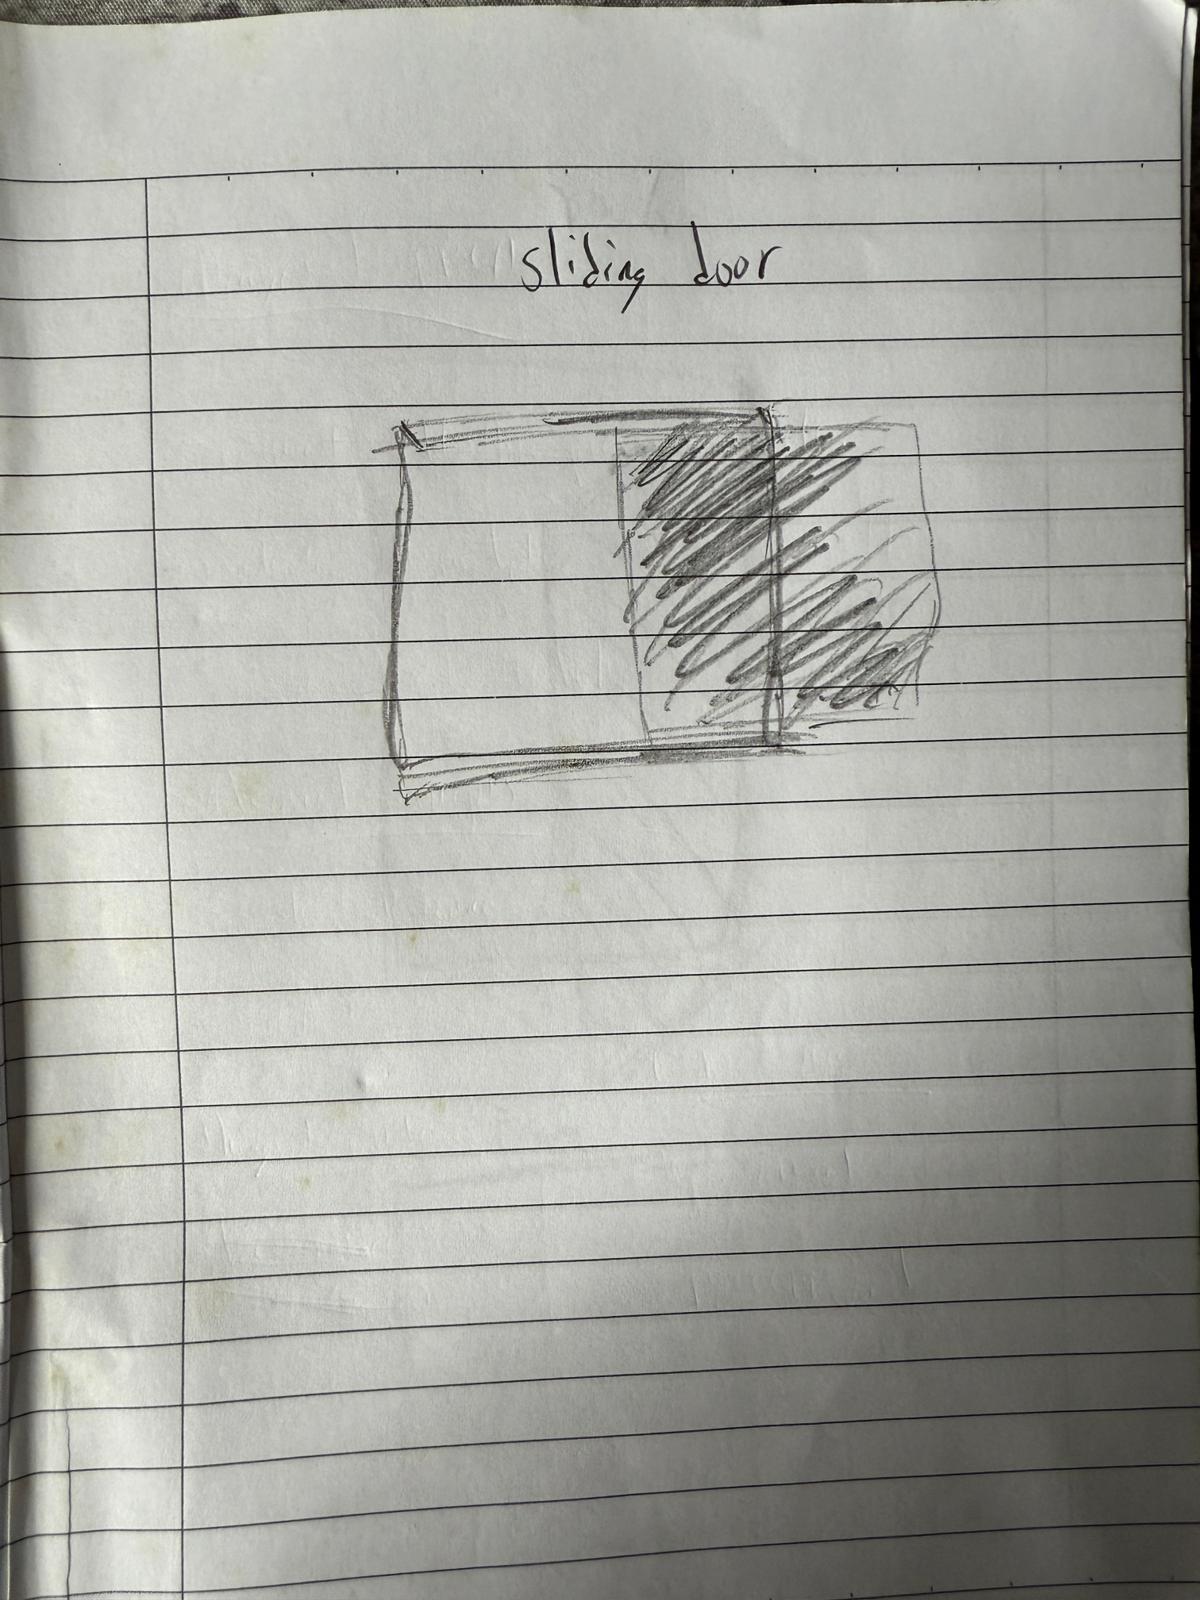 sliding door